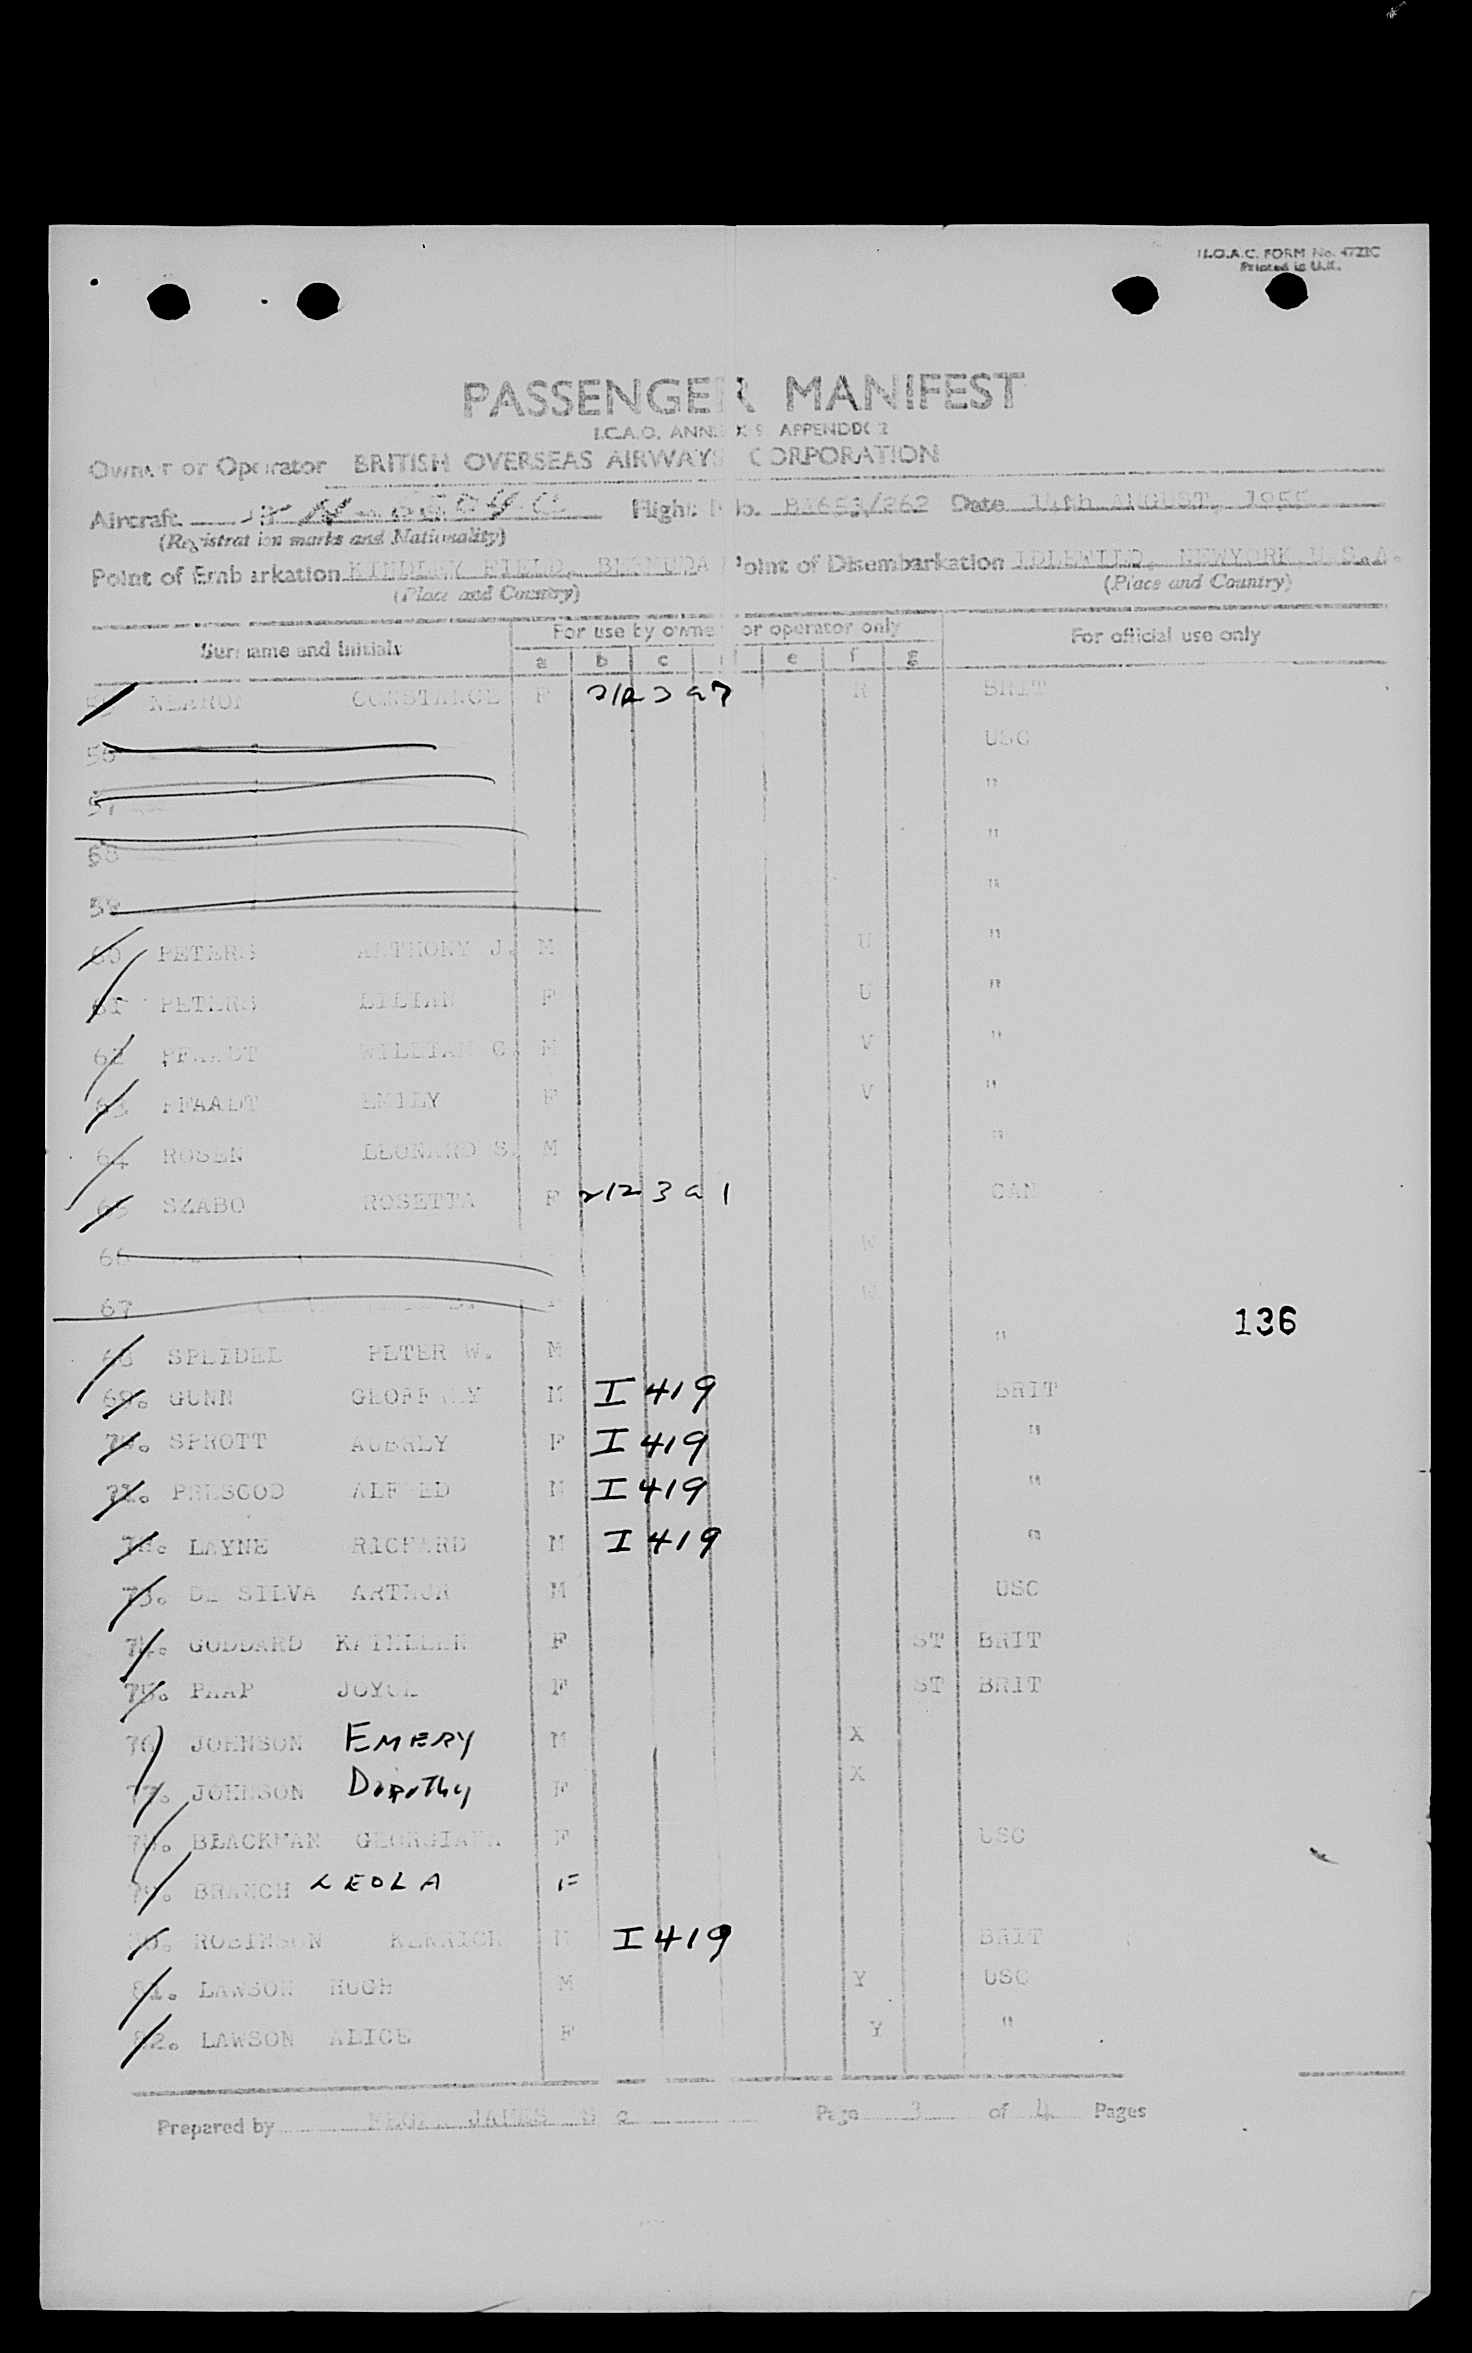 B.O.A.C. FORM No. 472BC
Printed in U.K.
PASSENGER MANIFEST
I.C.A.O. ANNEX 9 APPENDIX 2
Owner or Operator BRITISH OVERSEAS AIRWAYS CORPORATION
Aircraft Flight No. BA653/262 Date 14th AUGUST, 1955
(Registration marks and Nationality)
Point of Embarkation KINDLEY FIELD, BERMUDA Point of Disembarkation IDLEWILD, NEWYORK U.S.A.
(Place and Country) (Place and Country)
Surname and Initials For use by owner or operator only For official use only
a b c d e f g
55 CONSTANCE F 212 3 a 7 R BRIT
56 USC
57 "
58 "
59 "
60 PETERS ANTHONY J. M U "
61 PETERS LILIAN F U "
62 PFAADT WILLIAM C. M V "
63 PFAADT EMILY F V "
64 ROSEN LEONARD S. M "
65 SZABO ROSETTA F 212 3 a 1 CAN
66 W
67 W
136
68 SPEIDEL PETER W. M "
69. GUNN GEOFFREY M I 419 BRIT
70. SPROTT AUBREY F I 419 "
71. PRESCOD ALFRED M I 419 "
72. LAYNE RICHARD M I 419 "
73. DE SILVA ARTHUR M USC
74. GODDARD KATHLEEN F ST BRIT
75. PAAP JOYCE F ST BRIT
76 JOHNSON EMERY M X
77. JOHNSON Dorothy F X
78. BLACKMAN GEORGIANA F USC
79. BRANCH LEOLA F
80. ROBINSON KENRICK M I 419 BRIT
81. LAWSON HUGH M Y USC
82. LAWSON ALICE F Y "
Prepared by JAMES Page 3 of 4 Pages